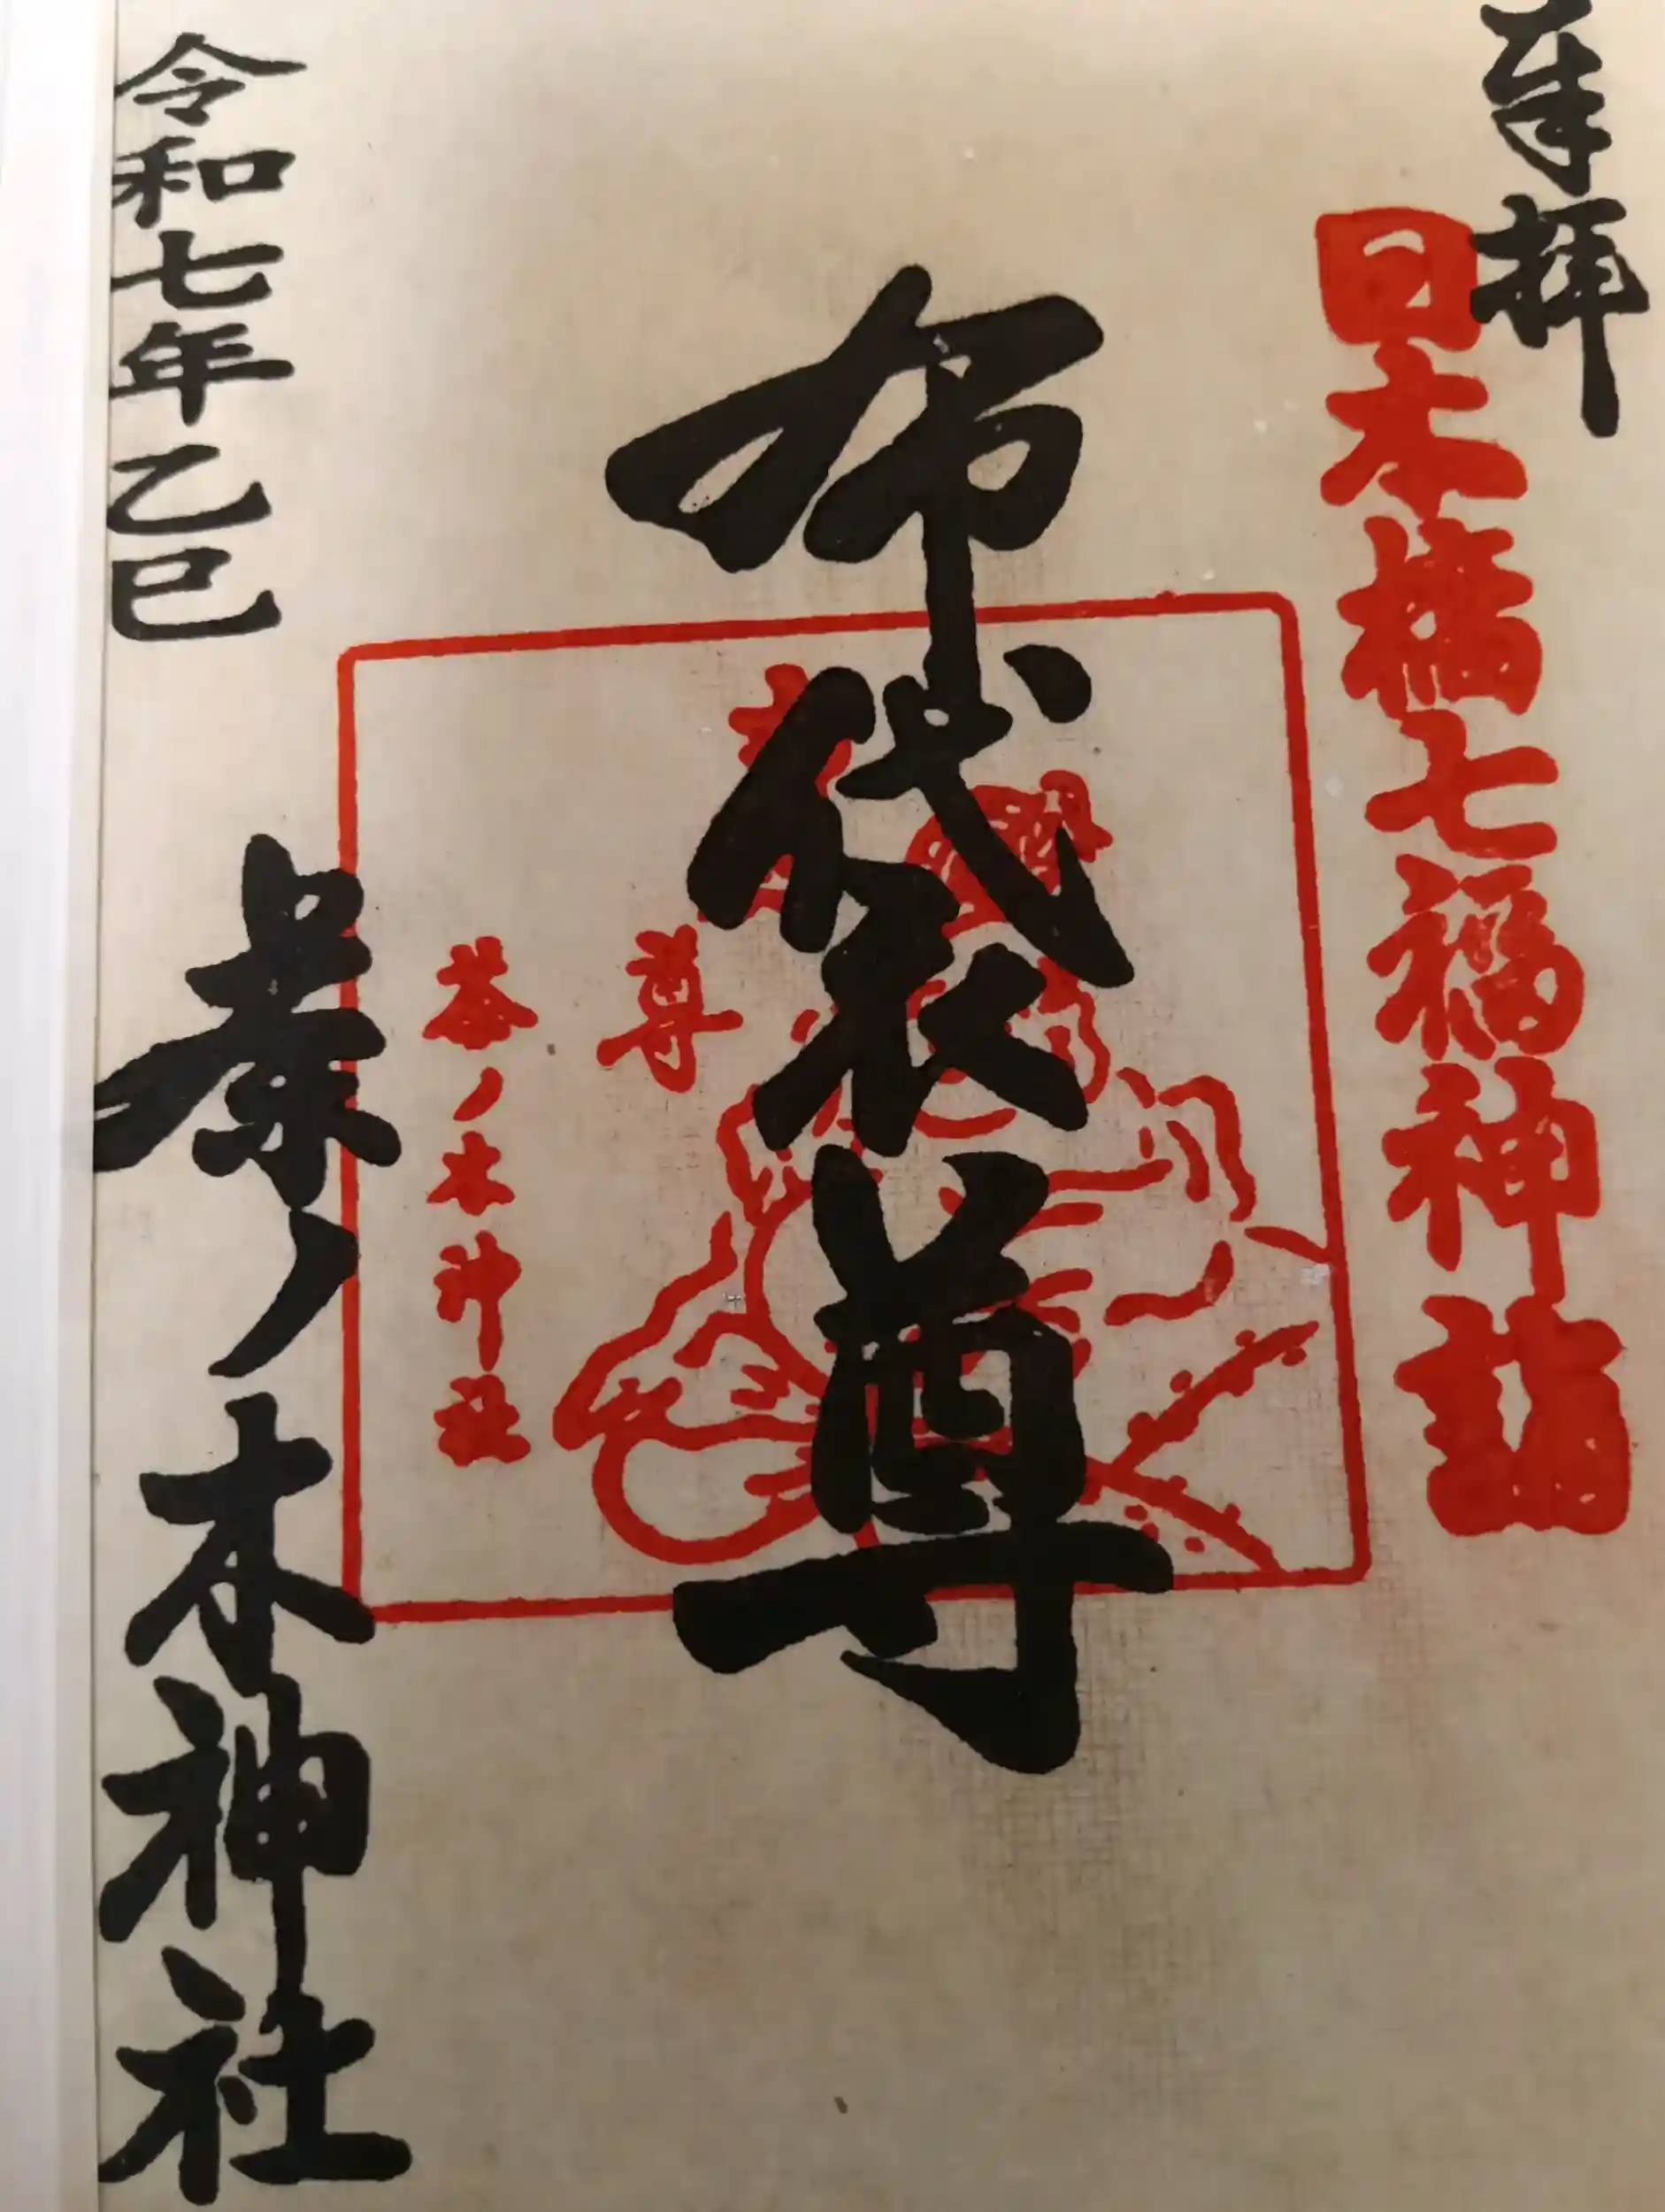 奉拝
日本橋七福神詣
布袋尊
尊
茶ノ木神社
令和七年乙巳
茶ノ木神社